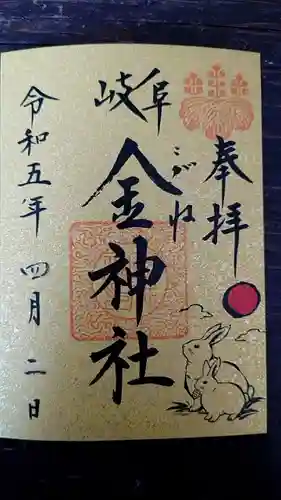 奉拝
岐阜
こがね
金神社
令和五年 四月 二日